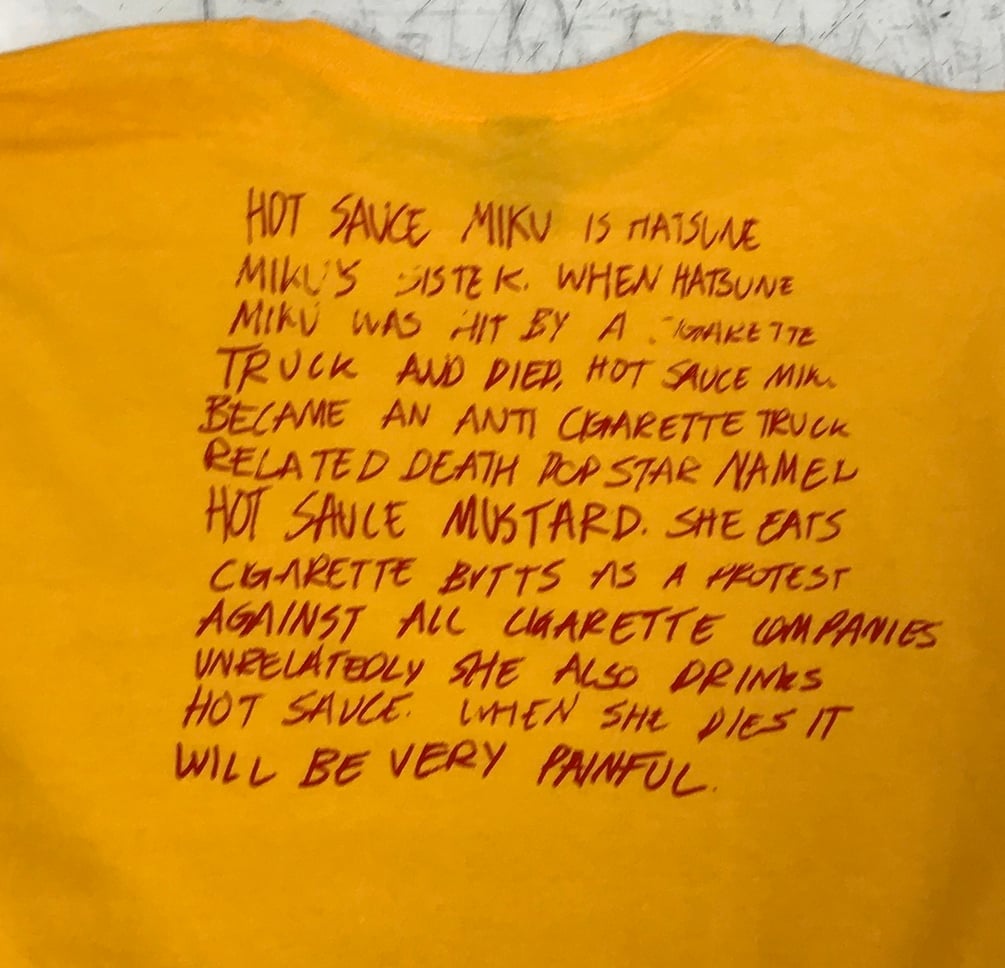 HOT SAUCE MIKU IS HATSUNE
MIKU'S SISTER. WHEN HATSUNE
MIKU WAS HIT BY A CIGARETTE
TRUCK AND DIED, HOT SAUCE MIKU
BECAME AN ANTI CIGARETTE TRUCK
RELATED DEATH POP STAR NAMED
HOT SAUCE MUSTARD. SHE EATS
CIGARETTE BUTTS AS A PROTEST
AGAINST ALL CIGARETTE COMPANIES
UNRELATEDLY SHE ALSO DRINKS
HOT SAUCE. WHEN SHE DIES IT
WILL BE VERY PAINFUL.